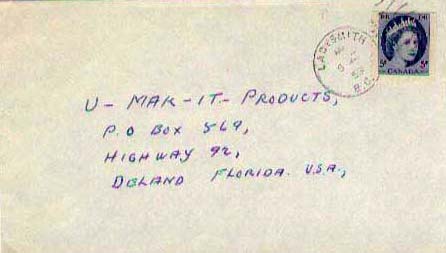 LADYSMITH
B.C.
5¢ 5¢
CANADA
U-MAK-IT-PRODUCTS,
P.O BOX 569,
HIGHWAY 92,
DELAND FLORIDA. U.S.A.,